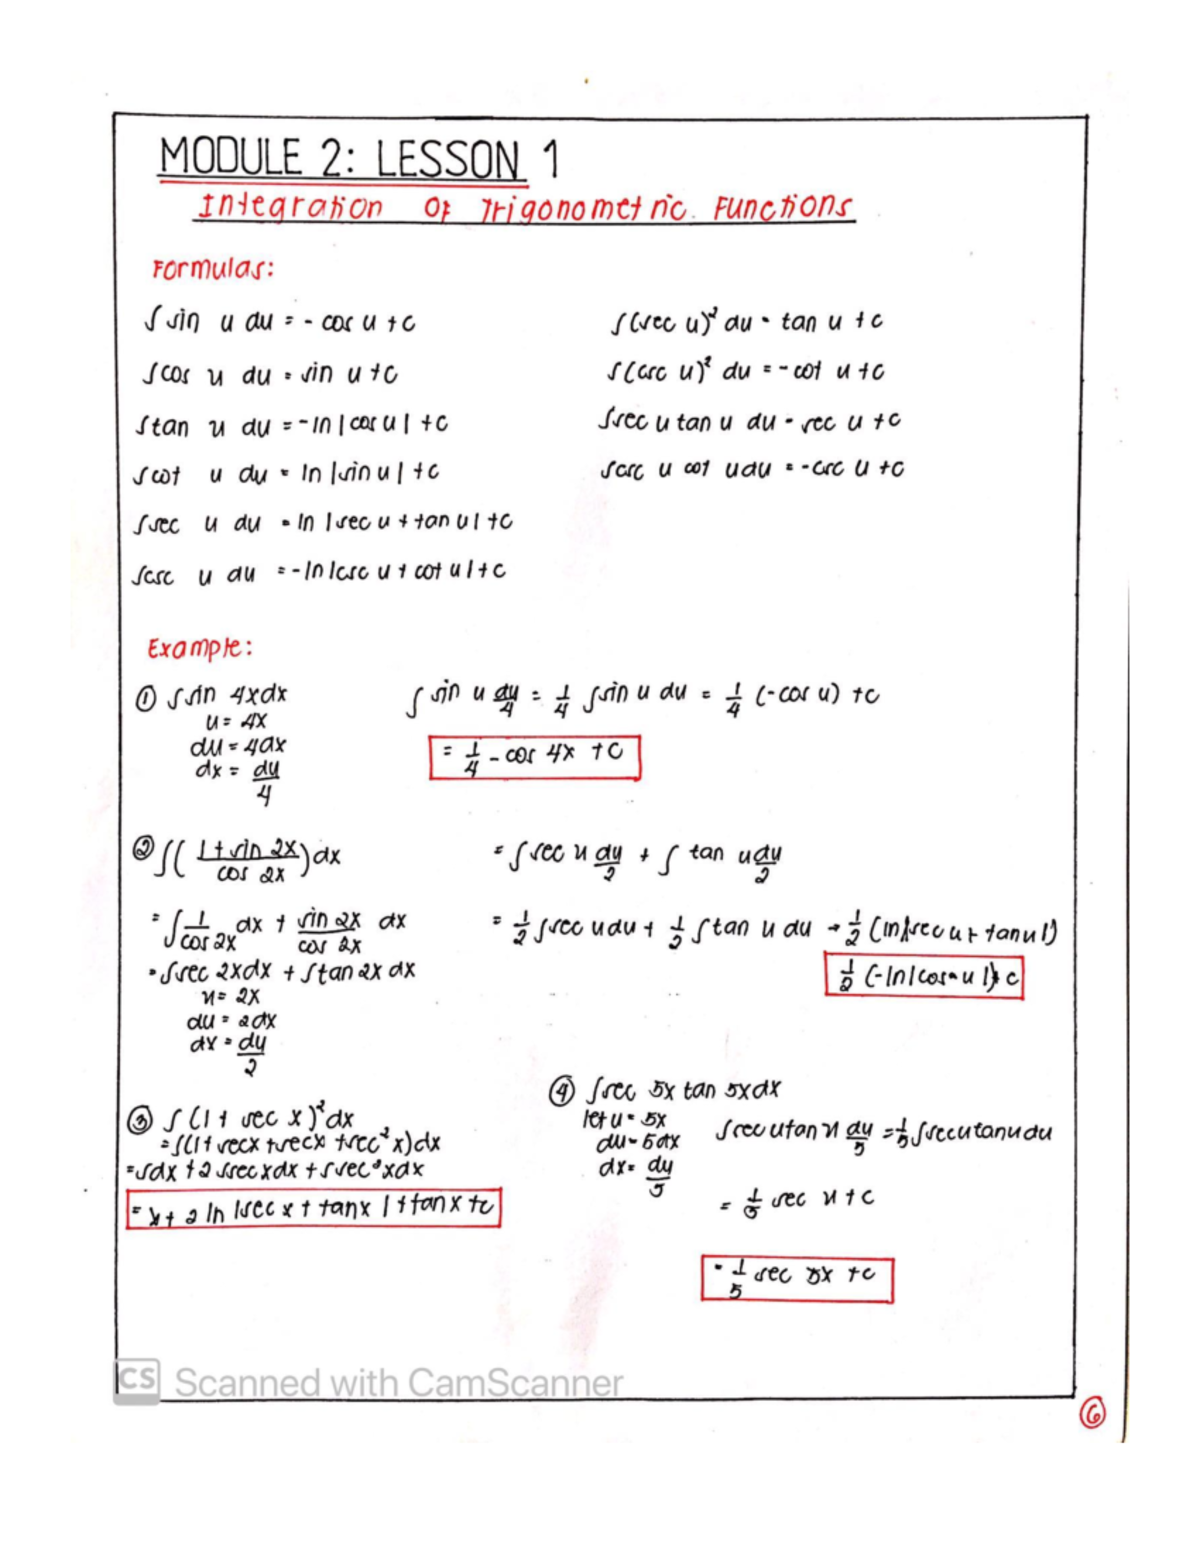 MODULE 2: LESSON 1
Integration Of Trigonometric Functions
Formulas:
∫ sin u du = - cos u + c
∫ cos u du = sin u + c
∫ tan u du = - ln | cos u | + c
∫ cot u du = ln | sin u | + c
∫ sec u du = ln | sec u + tan u | + c
∫ csc u du = - ln | csc u + cot u | + c
∫ (sec u)² du = tan u + c
∫ (csc u)² du = - cot u + c
∫ sec u tan u du = sec u + c
∫ csc u cot u du = - csc u + c
Example:
① ∫ sin 4x dx
u = 4x
du = 4dx
dx = du/4
∫ sin u du/4 = 1/4 ∫ sin u du = 1/4 (-cos u) + c
= 1/4 - cos 4x + c
② ∫ ( 1 + sin 2x / cos 2x ) dx
= ∫ 1/cos 2x dx + sin 2x / cos 2x dx
= ∫ sec 2x dx + ∫ tan 2x dx
u = 2x
du = 2dx
dx = du/2
= ∫ sec u du/2 + ∫ tan u du/2
= 1/2 ∫ sec u du + 1/2 ∫ tan u du → 1/2 (ln | sec u + tan u |)
1/2 (- ln | cos u |) + c
③ ∫ (1 + sec x)² dx
= ∫ (1 + sec x + sec x + sec² x) dx
= ∫ dx + 2 ∫ sec x dx + ∫ sec² x dx
= x + 2 ln | sec x + tan x | + tan x + c
④ ∫ sec 5x tan 5x dx
let u = 5x
du = 5dx
dx = du/5
∫ sec u tan u du/5 = 1/5 ∫ sec u tan u du
= 1/5 sec u + c
= 1/5 sec 5x + c
CS Scanned with CamScanner
6